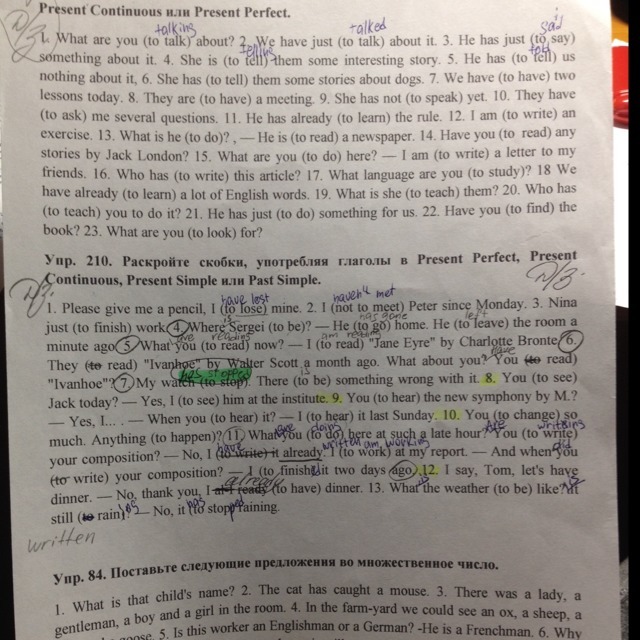 Present Continuous или Present Perfect.
talking talked said
1. What are you (to talk) about? 2. We have just (to talk) about it. 3. He has just (to say)
telling told
something about it. 4. She is (to tell) them some interesting story. 5. He has (to tell) us
nothing about it, 6. She has (to tell) them some stories about dogs. 7. We have (to have) two
lessons today. 8. They are (to have) a meeting. 9. She has not (to speak) yet. 10. They have
(to ask) me several questions. 11. He has already (to learn) the rule. 12. I am (to write) an
exercise. 13. What is he (to do)? , — He is (to read) a newspaper. 14. Have you (to read) any
stories by Jack London? 15. What are you (to do) here? — I am (to write) a letter to my
friends. 16. Who has (to write) this article? 17. What language are you (to study)? 18 We
have already (to learn) a lot of English words. 19. What is she (to teach) them? 20. Who has
(to teach) you to do it? 21. He has just (to do) something for us. 22. Have you (to find) the
book? 23. What are you (to look) for?
Упр. 210. Раскройте скобки, употребляя глаголы в Present Perfect, Present
Continuous, Present Simple или Past Simple.
have lost haven't met
1. Please give me a pencil, I (to lose) mine. 2. I (not to meet) Peter since Monday. 3. Nina
is has gone left
just (to finish) work 4. Where Sergei (to be)? — He (to go) home. He (to leave) the room a
are reading am reading
minute ago 5. What you (to read) now? — I (to read) "Jane Eyre" by Charlotte Bronte 6.
have
They (to read) "Ivanhoe" by Walter Scott a month ago. What about you? You (to read)
has stopped is
"Ivanhoe"? 7. My watch (to stop). There (to be) something wrong with it. 8. You (to see)
Jack today? — Yes, I (to see) him at the institute. 9. You (to hear) the new symphony by M.?
— Yes, I... . — When you (to hear) it? — I (to hear) it last Sunday. 10. You (to change) so
are doing Are writing
much. Anything (to happen)? 11. What you (to do) here at such a late hour? You (to write)
have written am working did
your composition? — No, I (to write) it already. I (to work) at my report. — And when you
(to write) your composition? — I (to finish) it two days ago. 12. I say, Tom, let's have
already
dinner. — No, thank you, I already (to have) dinner. 13. What the weather (to be) like? It
has
still (to rain)? — No, it (to stop) raining.
written
Упр. 84. Поставьте следующие предложения во множественное число.
1. What is that child's name? 2. The cat has caught a mouse. 3. There was a lady, a
gentleman, a boy and a girl in the room. 4. In the farm-yard we could see an ox, a sheep, a
goose. 5. Is this worker an Englishman or a German? -He is a Frenchman. 6. Why